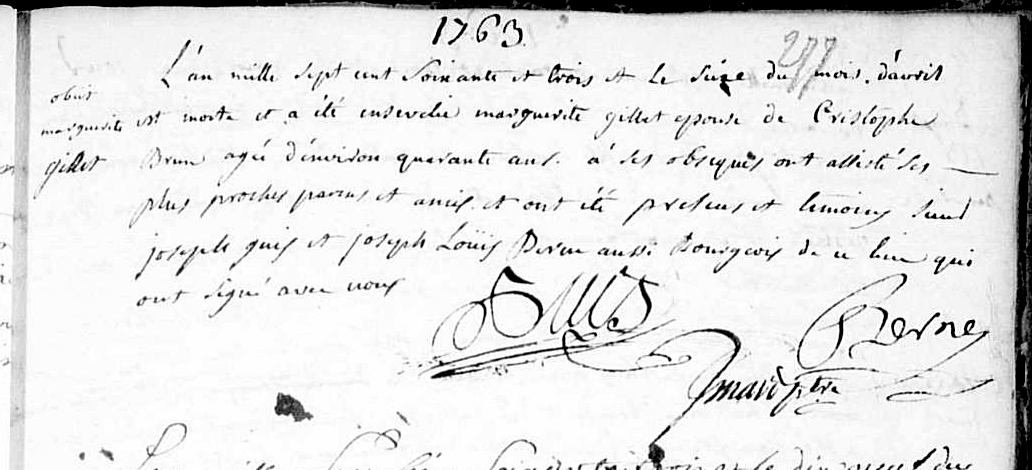 1763
277
L'an mille sept cent soixante et trois et le seize du mois d'avril
obiit
marguerite
gillet
est morte et a été ensevelie marguerite gillet epouse de Cristophe
Brun agée d'environ quarante ans. a ses obseques ont assisté ses
plus proches parens et amis et ont été presens et temoins
joseph guis et joseph Loüis Berne aussi Bourgeois de ce lieu qui
ont signé avec nous
GUIS
Berne
ptre